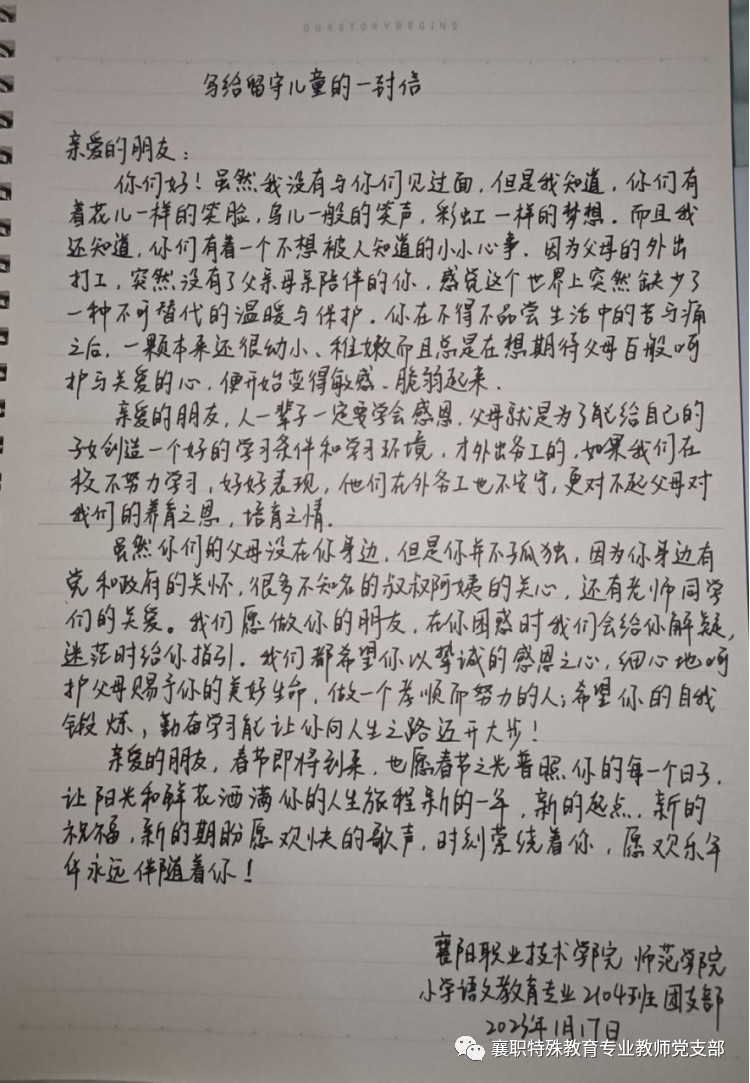 OURSTORYBEGINS
写给留守儿童的一封信
亲爱的朋友：
你们好！虽然我没有与你们见过面，但是我知道，你们有
着花儿一样的笑脸，鸟儿一般的笑声，彩虹一样的梦想。而且我
还知道，你们有着一个不想被人知道的小小心事。因为父母的外出
打工，突然没有了父亲母亲陪伴的你，感觉这个世界上突然缺少了
一种不可替代的温暖与保护。你在不得不品尝生活中的苦与痛
之后，一颗本来还很幼小、稚嫩而且总是在想期待父母百般呵
护与关爱的心，便开始变得敏感、脆弱起来.
亲爱的朋友，人一辈子一定要学会感恩，父母就是为了能给自己的
子女创造一个好的学习条件和学习环境，才外出务工的，如果我们在
校不努力学习，好好表现，他们在外务工也不安宁，更对不起父母对
我们的养育之恩，培育之情.
虽然你们的父母没在你身边，但是你并不孤独，因为你身边有
党和政府的关怀，很多不知名的叔叔阿姨的关心，还有老师同学
们的关爱。我们愿做你的朋友，在你困惑时我们会给你解疑，
迷茫时给你指引。我们都希望你以挚诚的感恩之心，细心地呵
护父母赐予你的美好生命，做一个孝顺而努力的人；希望你的自我
锻炼，勤奋学习能让你向人生之路迈开大步！
亲爱的朋友，春节即将到来，也愿春节之光普照你的每一个日子，
让阳光和鲜花洒满你的人生旅程新的一年，新的起点，新的
祝福，新的期盼愿欢快的歌声，时刻萦绕着你，愿欢乐年
年永远伴随着你！
襄阳职业技术学院 师范学院
小学语文教育专业2104班团支部
2023年1月17日
襄职特殊教育专业教师党支部